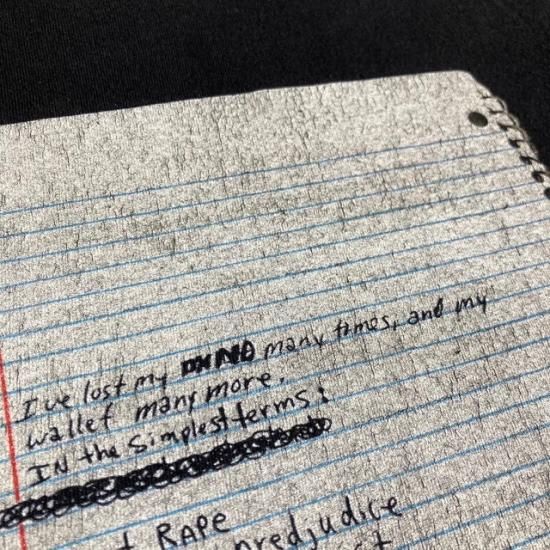 I've lost my MIND many times, and my
wallet many more.
IN the simplest terms:
RAPE
predjudice